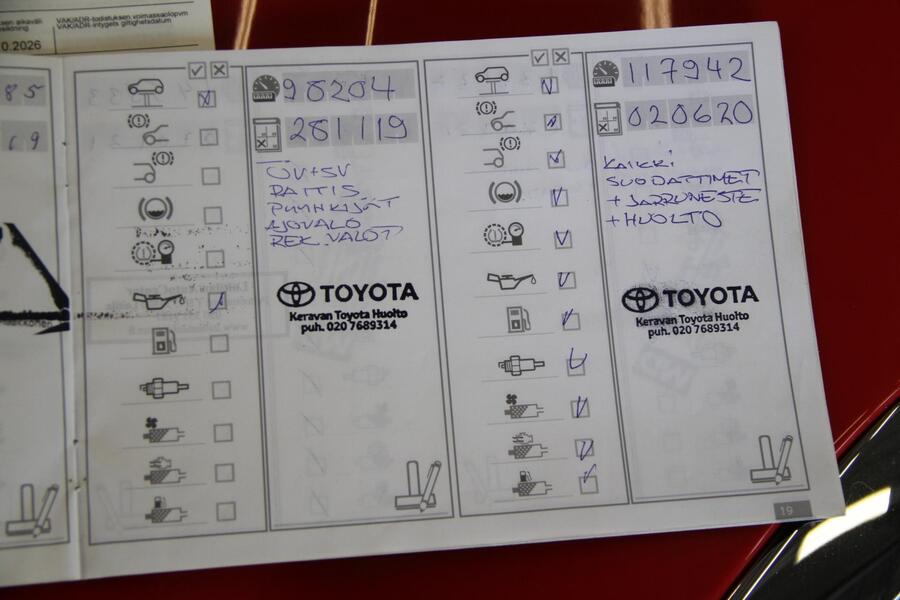 VAK/ADR-todistuksen voimassaolopvm
VAK/ADR-intygets giltighetsdatum
0.2026
85
19
98204
281119
ÖV+SV
RAITIS.
PYYHKIJÄT
AJOVALO
REK. VALOT
TOYOTA
Keravan Toyota Huolto
puh. 020 7689314
117942
020620
KAIKKI
SUODATTIMET
+ JARRUNESTE
+ HUOLTO
TOYOTA
Keravan Toyota Huolto
puh. 020 7689314
19